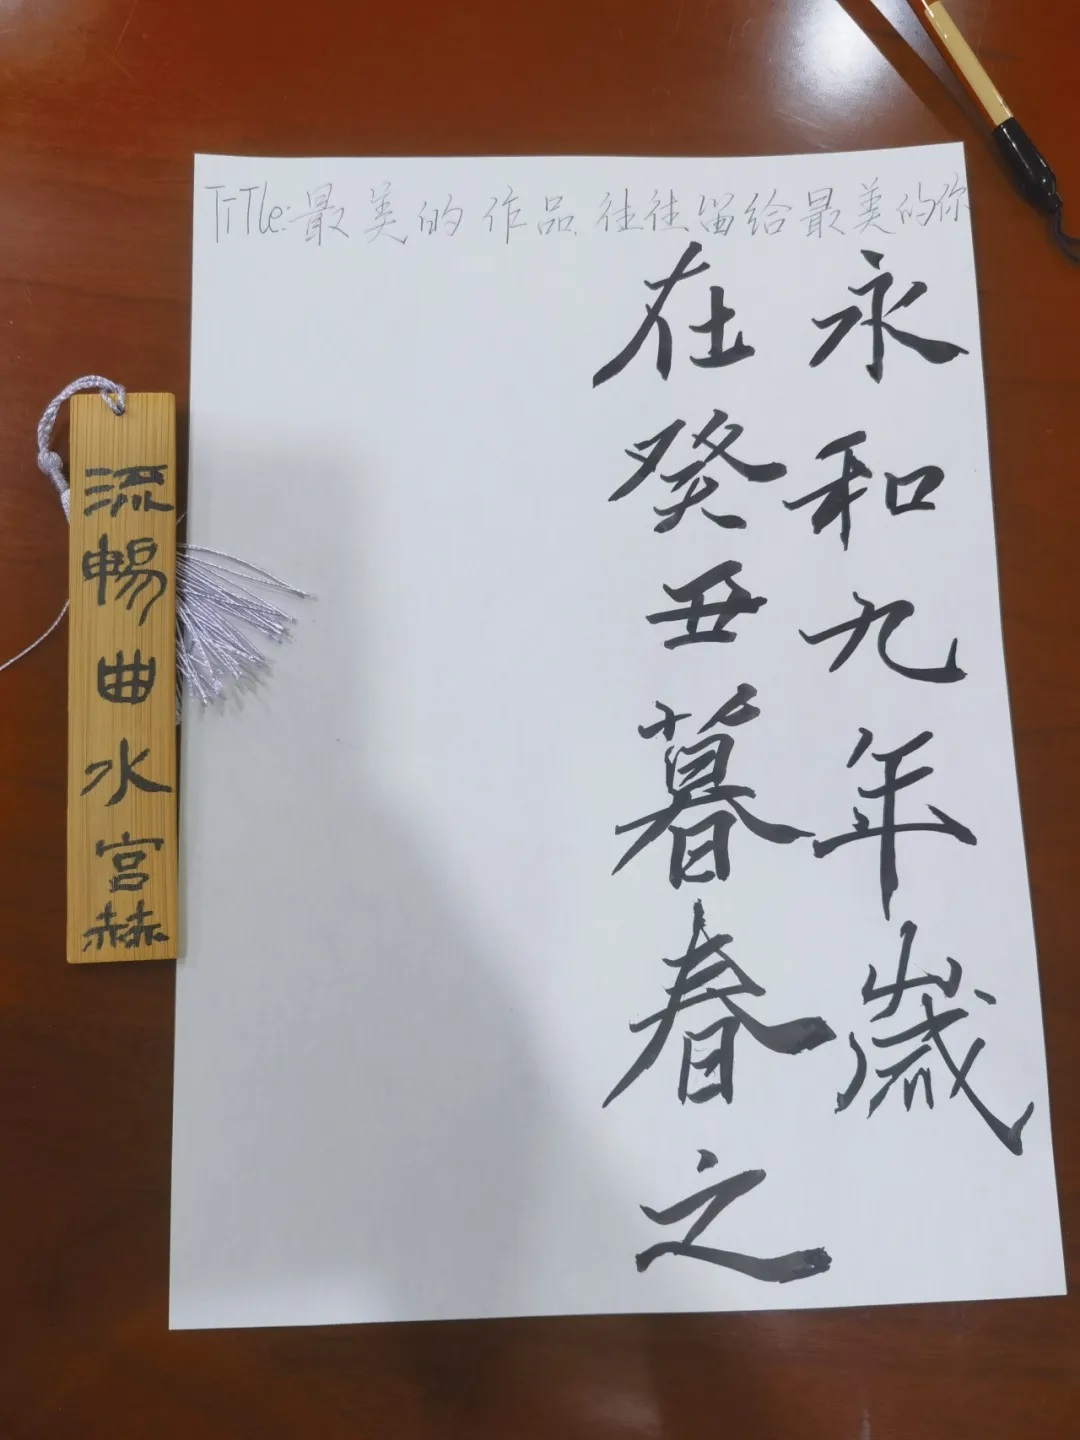 Title:最美的作品,往往留给最美的你
永和九年歲
在癸丑暮春之
流暢曲水宫赫